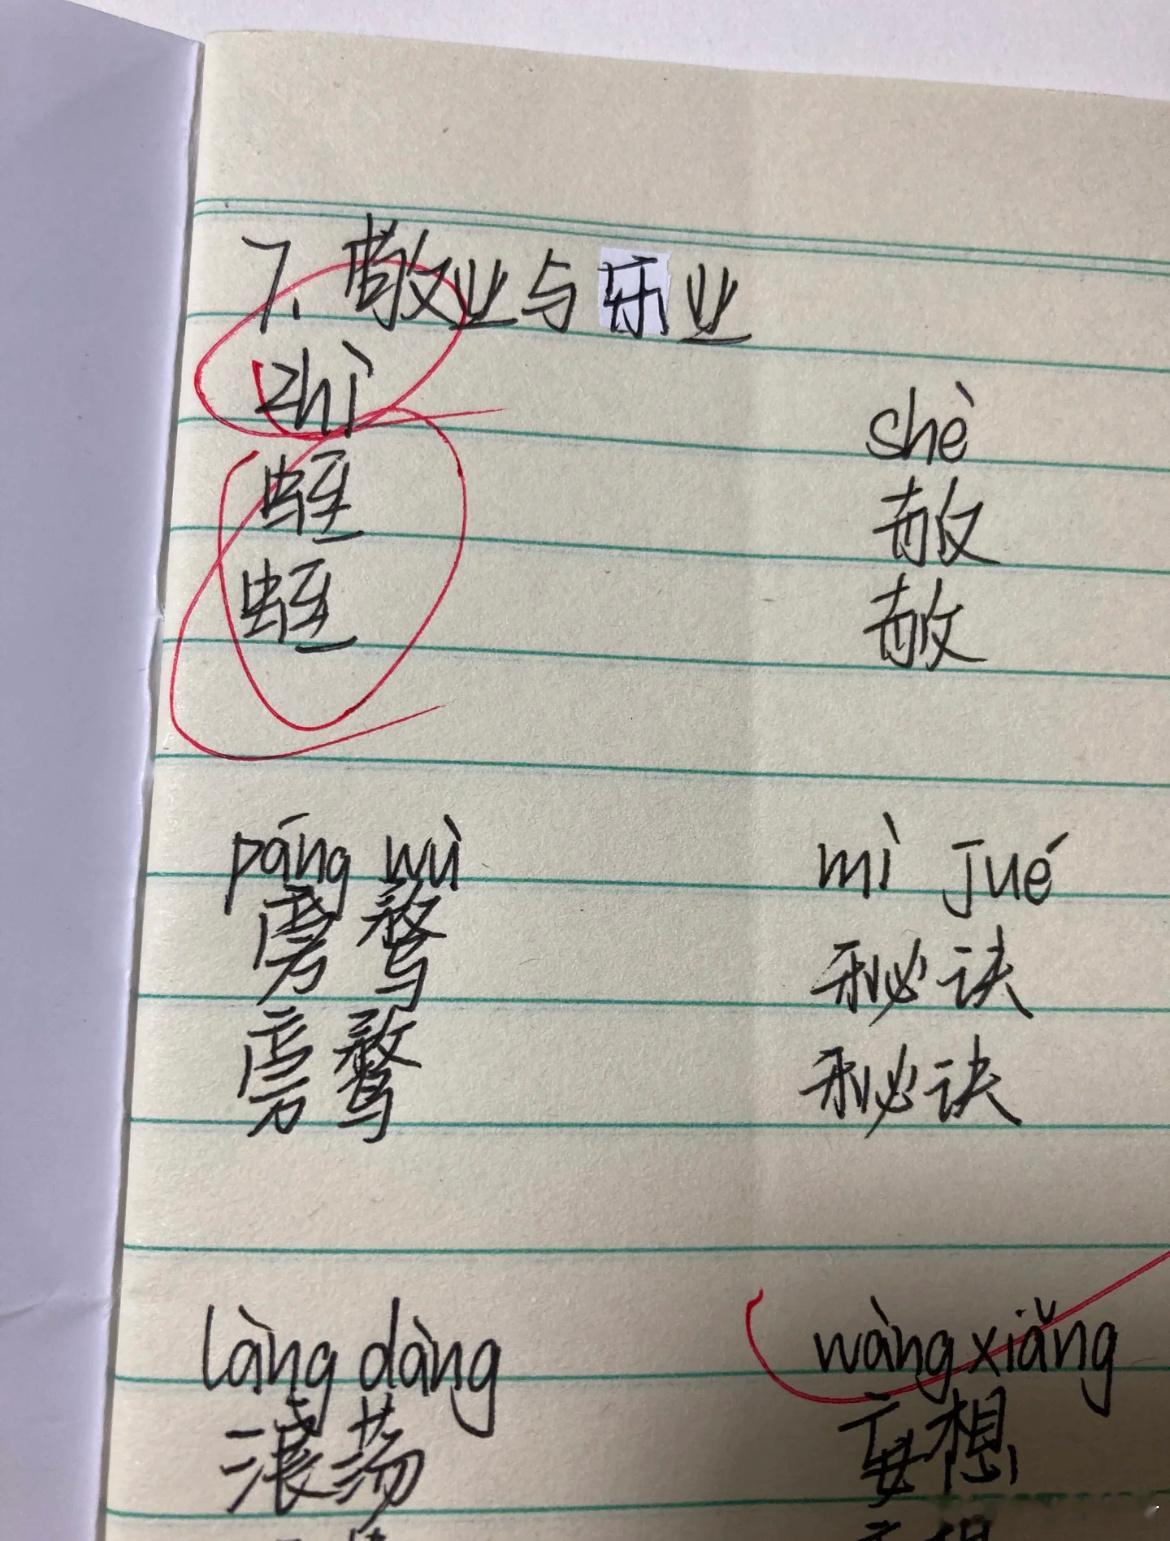 7. 敬业与乐业
zhì
蛭
蛭
shè
赦
赦
páng wù
旁骛
旁骛
mì jué
秘诀
秘诀
làng dàng
浪荡
wàng xiǎng
妄想